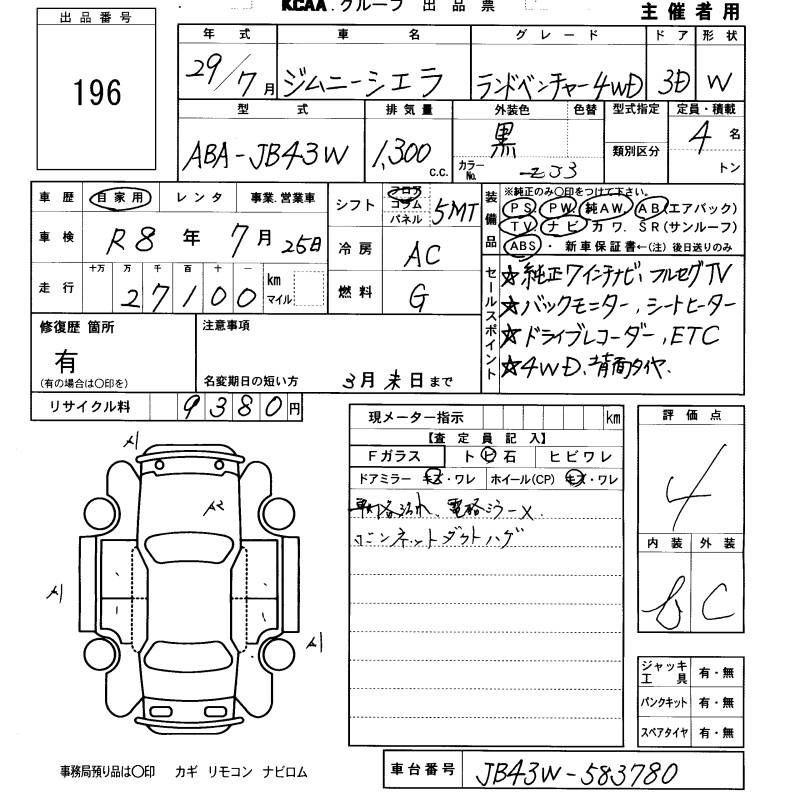 KCAA.グループ 出品票
主催者用
出品番号
196
年式 車名 グレード ドア 形状
29/7月 ジムニーシエラ ランドベンチャー4WD 3D W
型式 排気量 外装色 色替 型式指定 定員・積載
ABA-JB43W 1,300 c.c. 黒 カラーNo. ZJ3 類別区分 4名
トン
車歴 自家用 レンタ 事業.営業車
シフト フロア コラム パネル 5MT
装備品 ※純正のみ○印をつけて下さい。
PS PW 純AW. AB(エアバック)
TV. ナビ カワ. SR(サンルーフ)
ABS・新車保証書←(注)後日送りのみ
車検 R8年7月25日
冷房 AC
走行 十万 万 千 百 十 一
27100 km マイル
燃料 G
セールスポイント
☆純正7インチナビ,フルセグTV
☆バックモニター,シートヒーター
☆ドライブレコーダー,ETC
☆4WD、背面タイヤ.
修復歴 箇所
有
(有の場合は○印を)
注意事項
名変期日の短い方 3月末日まで
リサイクル料 9380円
現メーター指示 km
【査定員記入】
Fガラス トビ石 ヒビワレ
ドアミラー キズ・ワレ ホイール(CP) キズ・ワレ
電格ミラー×
ボンネットダクトハゲ
評価点
4
内装 外装
B C
A1
A2
A1
A1
ジャッキ工具 有・無
パンクキット 有・無
スペアタイヤ 有・無
事務局預り品は○印 カギ リモコン ナビロム
車台番号 JB43W-583780